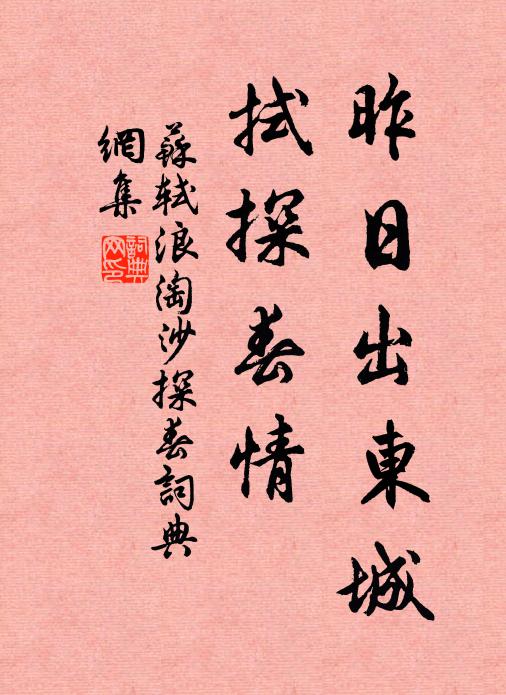 昨日出東城
拭探春情
蘇軾浪淘沙探春詞典
網集
詞典
网印